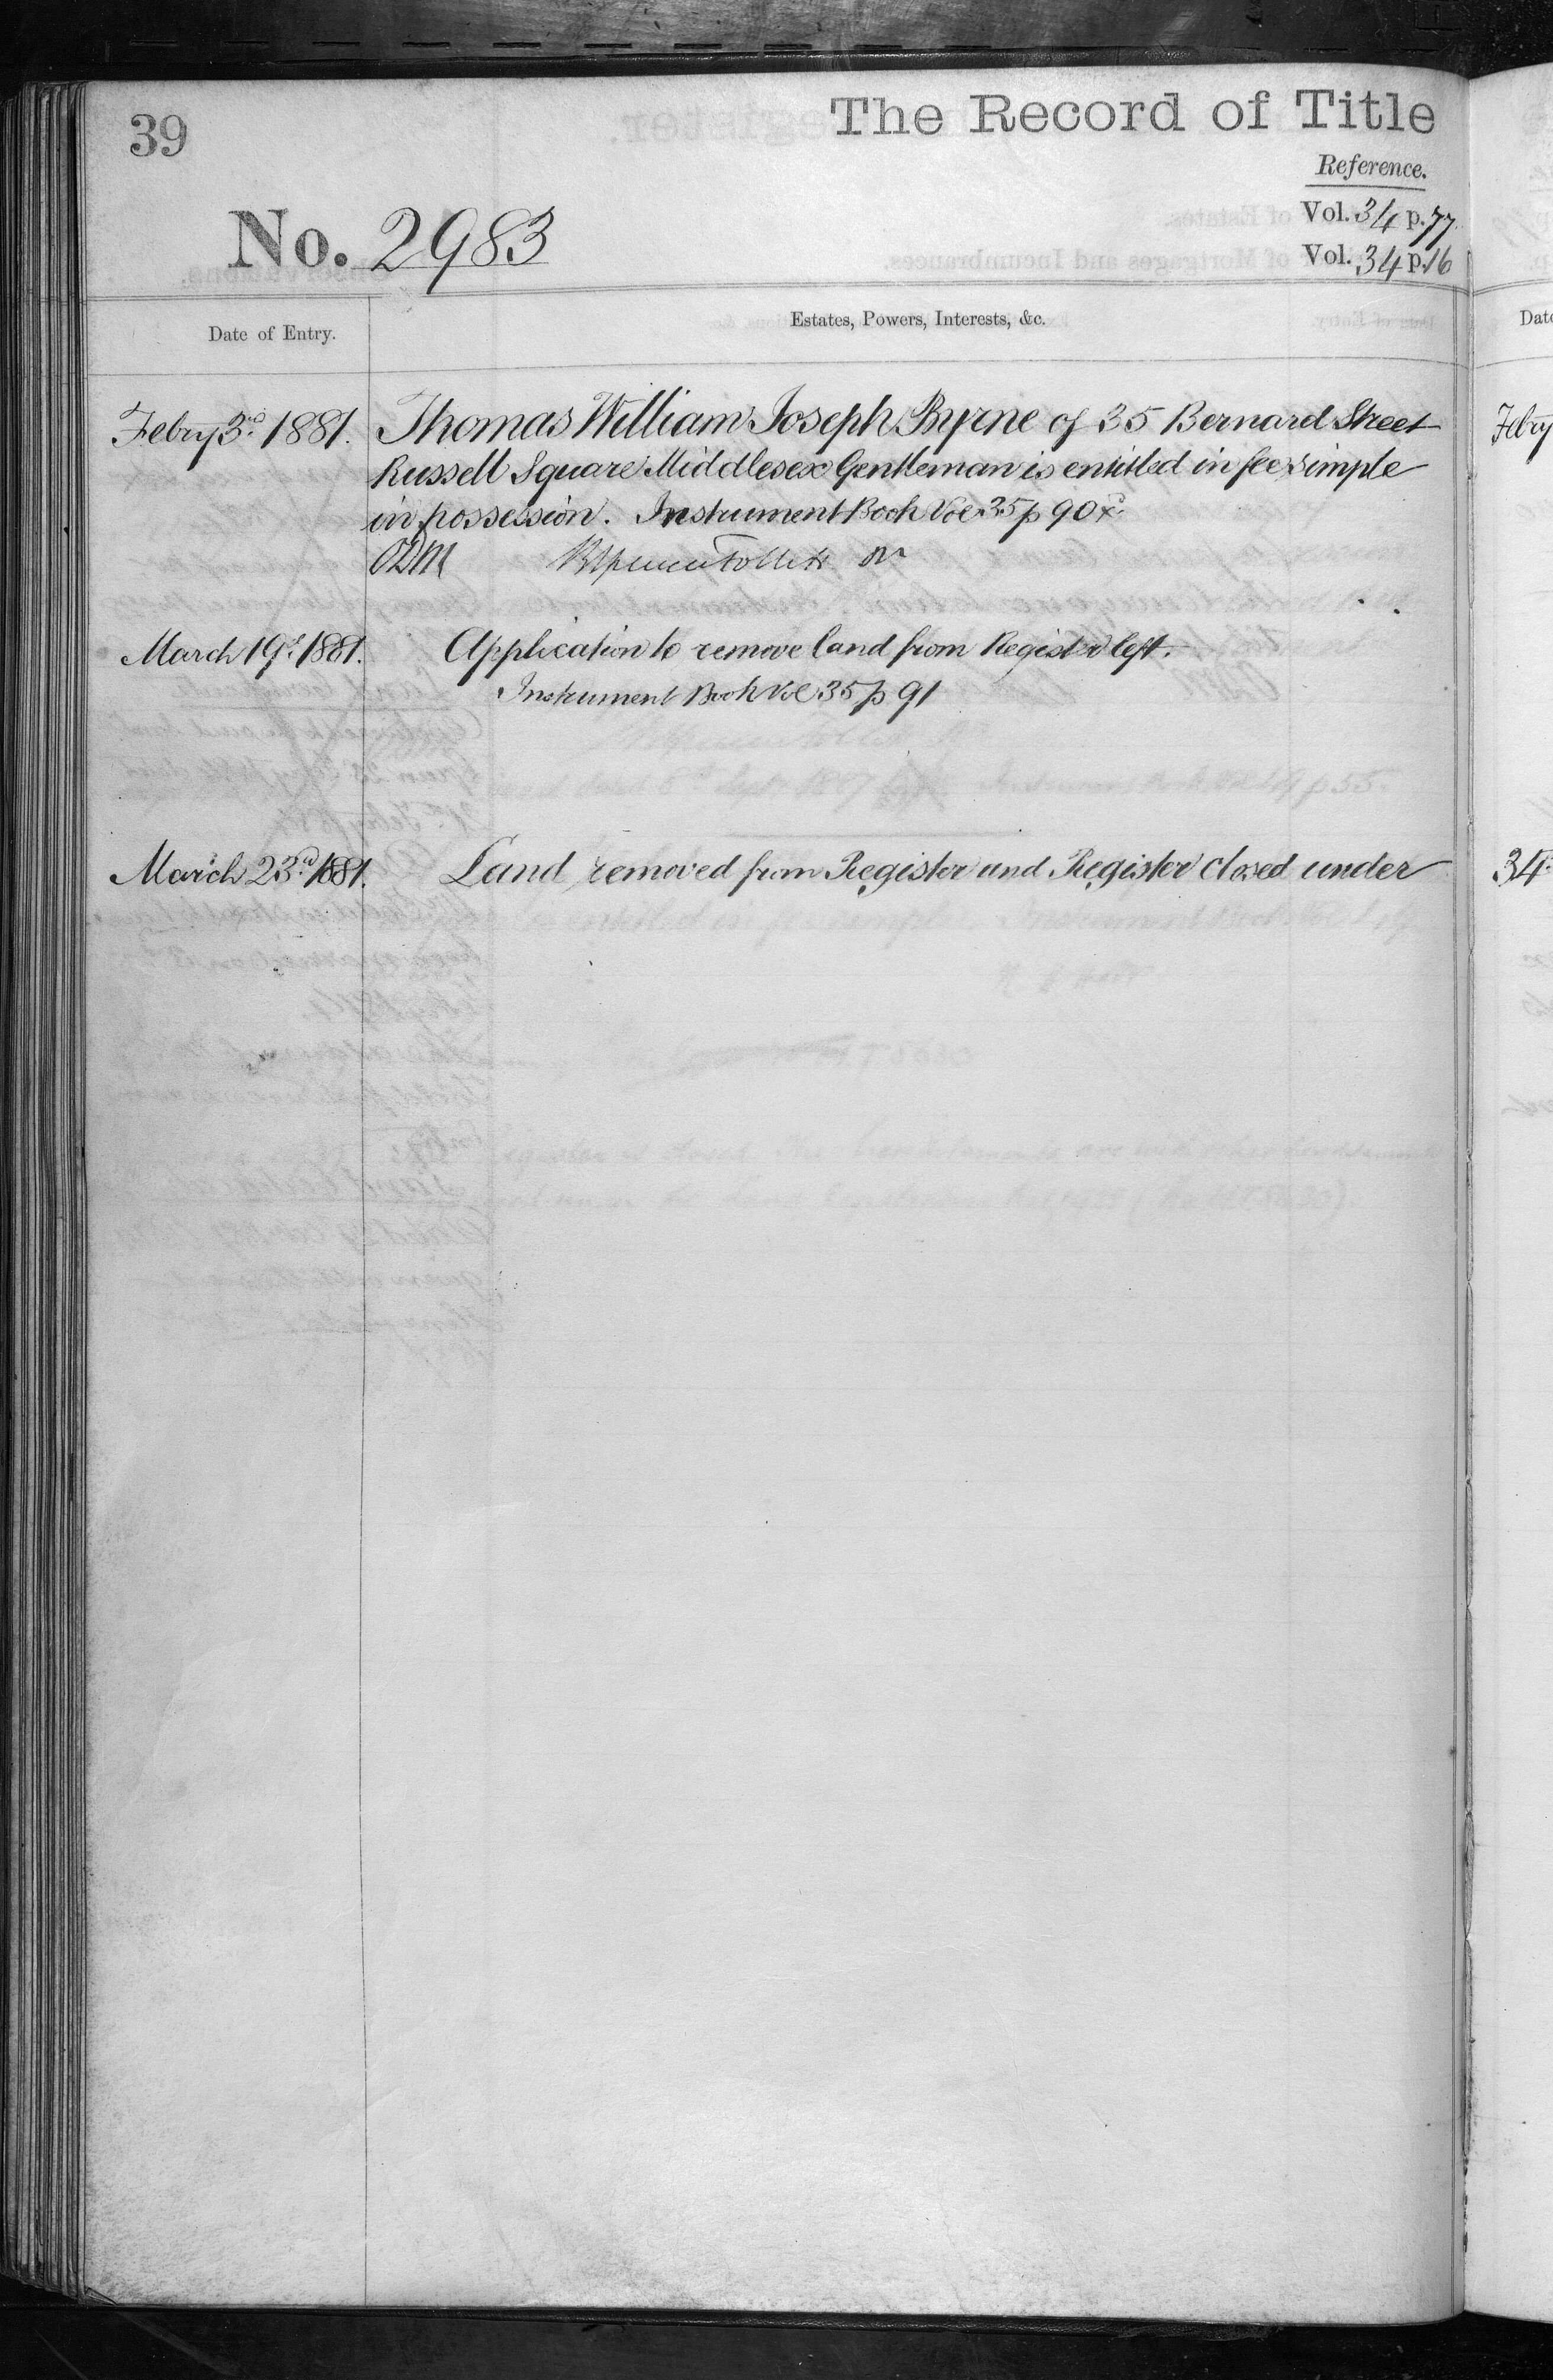 39
The Record of Title
Reference.
No. 2983
Vol. 34 p. 77.
Vol. 34 p. 16
Date of Entry.
Estates, Powers, Interests, &c.
Febry 3rd 1881.
Thomas William Joseph Byrne of 35 Bernard Street
Russell Square Middlesex Gentleman is entitled in fee simple
in possession. Instrument Book Vol 35 p 90 &c.
ODM
March 19th 1881.
Application to remove land from Register left.
Instrument Book Vol 35 p 91
March 23rd 1881.
Land removed from Register and Register closed under
Date
Febry
34